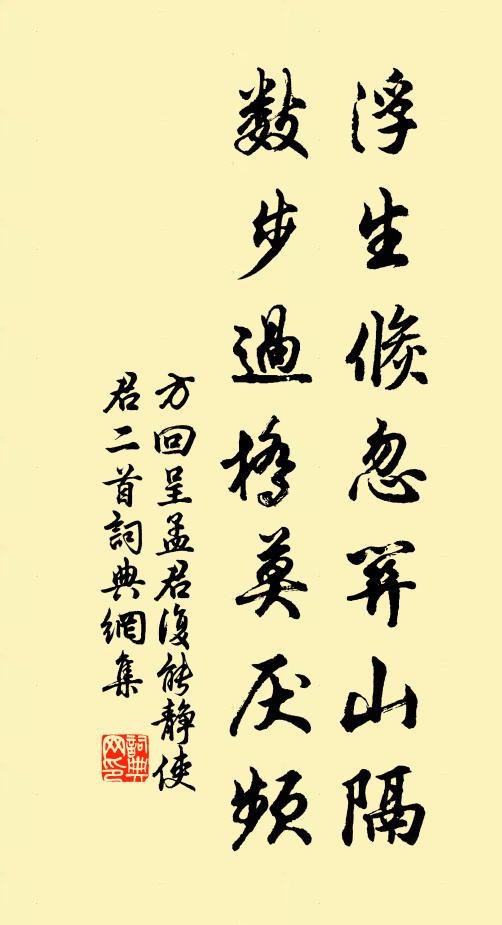 浮生倏忽關山隔
數步過橋莫厭頻
方回呈孟君復能靜使
君二首詞典網集
詞典
网印